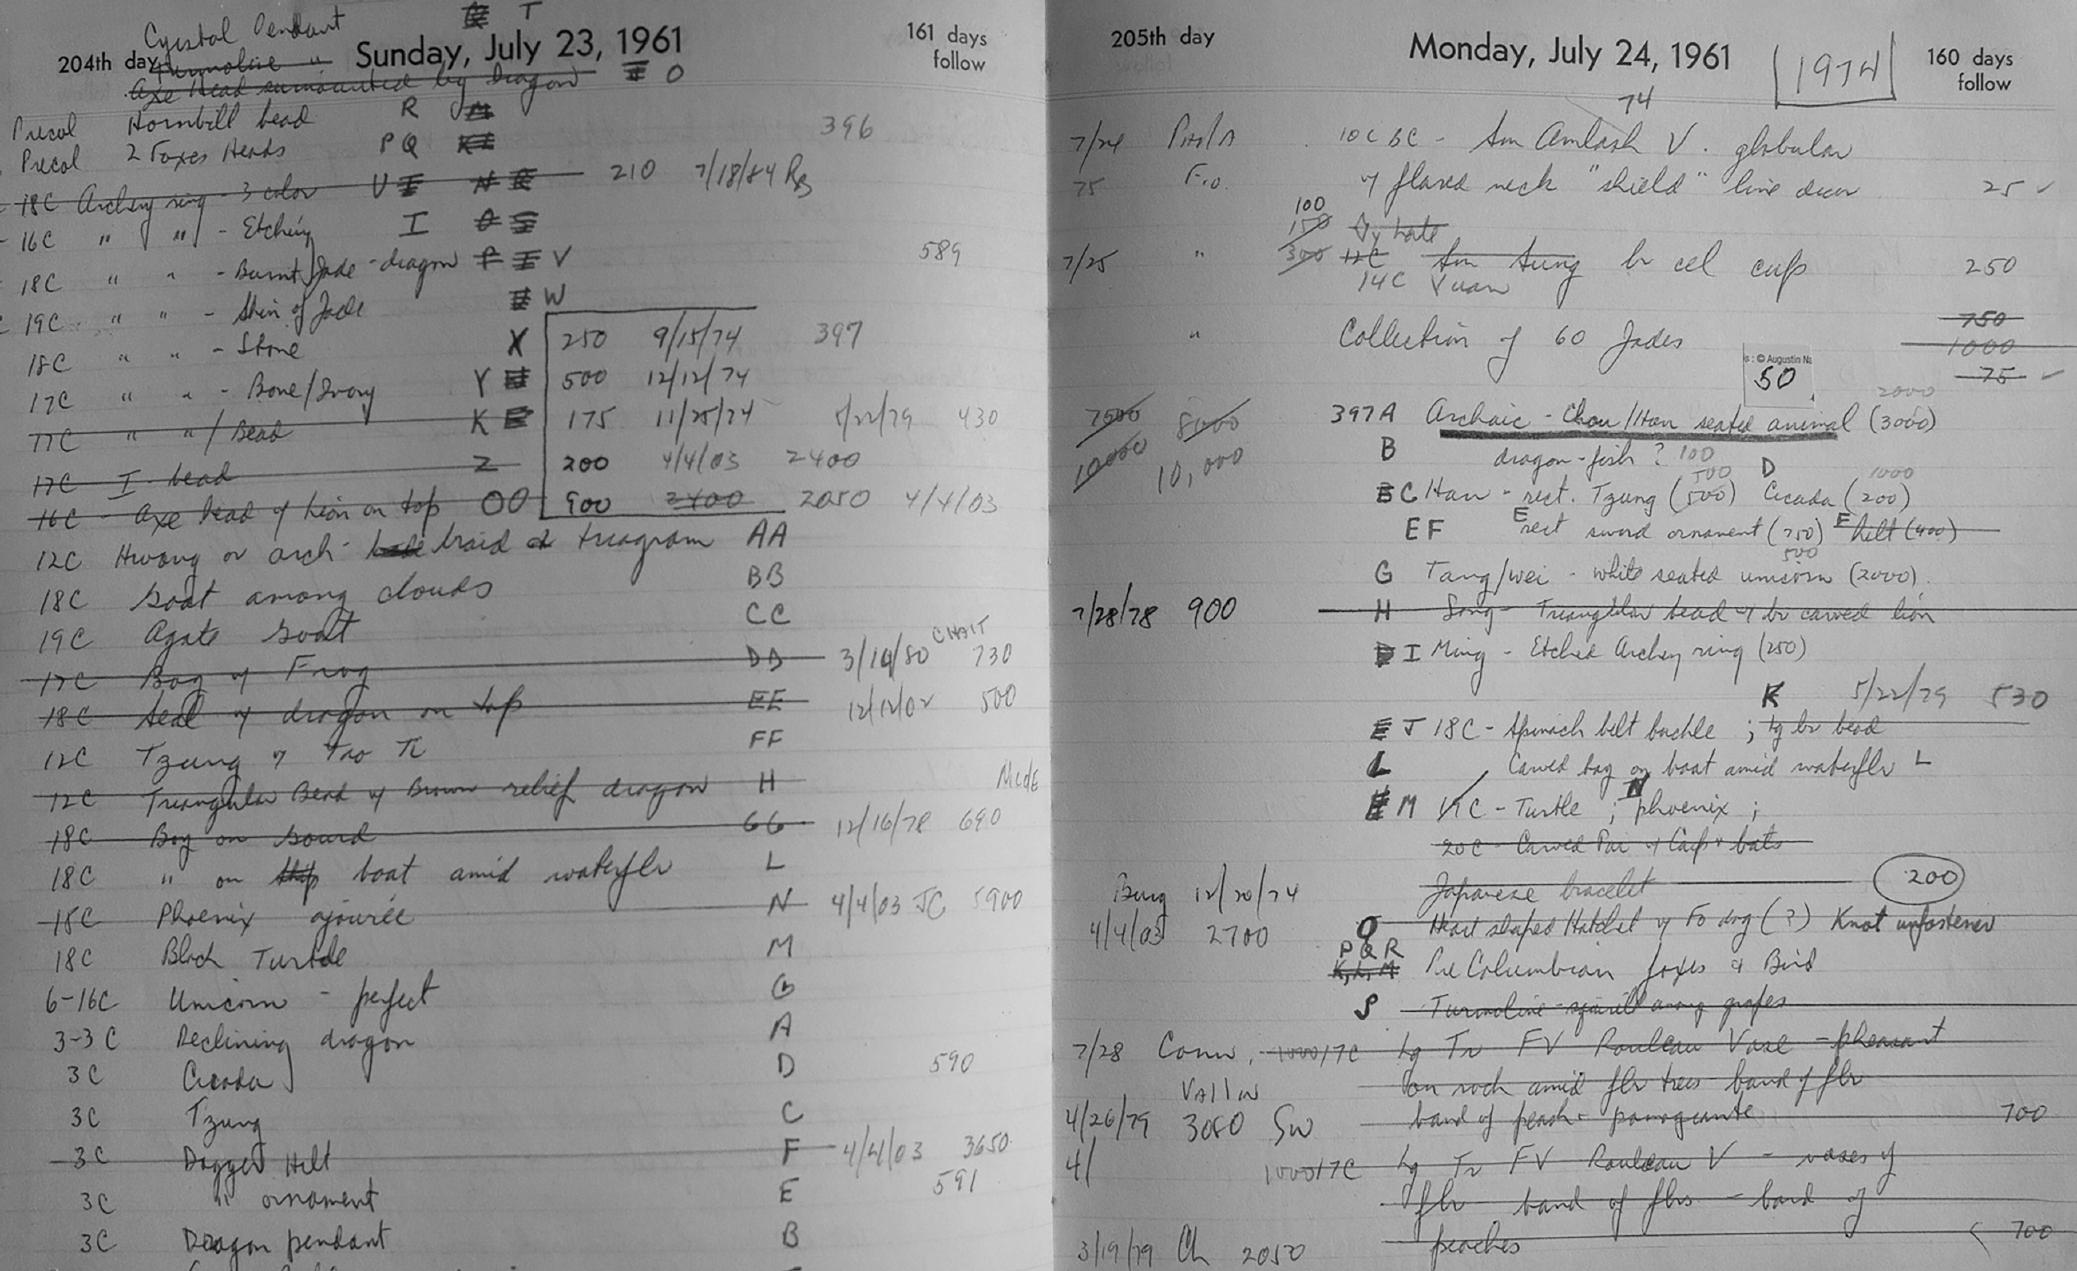 Crystal Pendant T
204th day Sunday, July 23, 1961 161 days follow
Turmoline "
Axe Head surmounted by dragon O
Precol Hornbill bead R
396
Precol 2 Foxes Heads PQ
18C Archery ring - 3 color U 210 7/18/84
16C " " - Etching I
18C " " - Burnt Jade - dragon V 589
19C " " - Skin of Jade W
18C " " - Stone X 250 9/15/74 397
17C " " - Bone/Ivory Y 500 12/12/74
17C " " / Bead K 175 11/25/74 5/22/79 430
17C I - bead Z 200 4/4/03 2400
16C - Axe head w lion on top OO 900 2400 2050 4/4/03
12C Hwang or arch - braid & triagram AA
18C Goat among clouds BB
19C Agate Goat CC
17C Boy w Frog DD 3/10/80 CHAIT 730
18C Seal w dragon on top EE 12/12/02 500
12C Tzung w Tao Ti FF
12C Triangular Bead w Brown relief dragon H
18C Boy on Gourd GG 12/16/78 690
18C " on ship boat amid waterflr L
18C Phoenix ajourée N 4/4/03 JC 5900
18C Black Turtle M
6-16C Unicorn - perfect G
3-3C Reclining dragon A
3C Cicada D 590
3C Tzung C
3C Dagger Hilt F 4/4/03 3650
3C " ornament E 591
3C Dragon pendant B
205th day Monday, July 24, 1961 1974 160 days follow
74
7/24 10C BC - Sm Amlash V. globular
75 w flared neck "shield" line decor 25
100
150
7/25 " 300 12C Sm Sung br cel cup 250
14C Yuan
750
" Collection of 60 Jades 1000
© Augustin
50 75
2000
7500 8000 397A Archaic - Chou/Han seated animal (3000)
10000 10,000 B dragon-fish? 100
500 D 1000
C Han - rect. Tzung (500) Cicada (200)
EF E rect sword ornament (250) F hilt (400)
500
G Tang/Wei - white seated unicorn (2000)
7/28/78 900 H Song - Triangular bead w br carved lion
I Ming - Etched Archery ring (250)
K 5/22/79 530
E J 18C - Spinach belt buckle; lg br bead
L Carved boy on boat amid waterflr L
M 17C - Turtle; N phoenix;
20C - Carved Pair w Caps + bats
12/20/74 Japanese bracelet 200
4/4/03 2700 O Heart shaped Hatchet w Fo dog (?) Knot unfastened
P Q R
K, L, M Pre Columbian foxes & Bird
S Turmoline - squirell among grapes
7/28 Conn. 1000 17C lg Tr FV Rouleau Vase - pheasant
on rock amid flr trees band of flr
4/26/79 3080 SW band of peach + pomegranate 700
4/ 1000 17C lg Tr FV Rouleau V - vases of
flr band of flrs - band of
3/19/79 Ch 2050 peaches 700